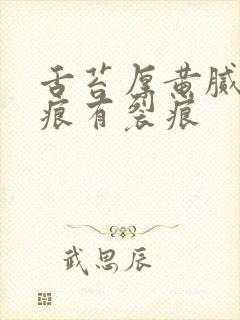 舌苔厚黄腻
痕有裂痕
武思辰